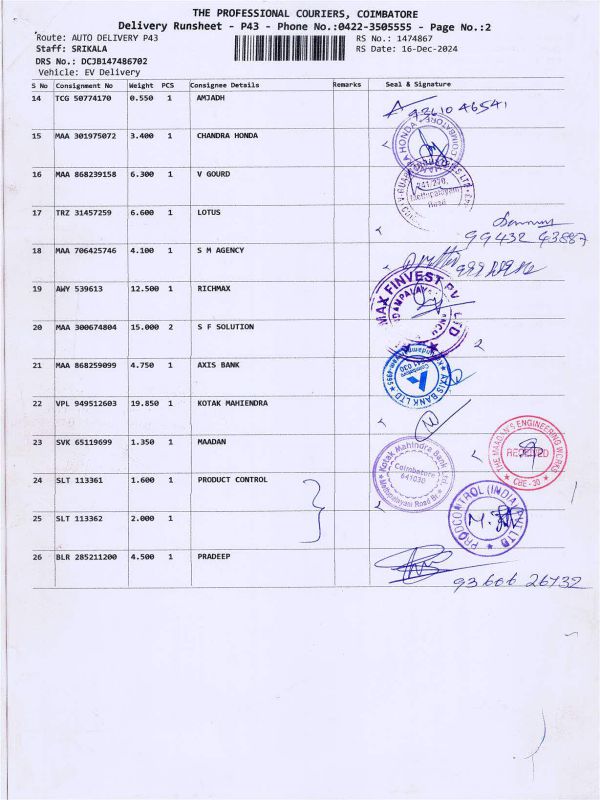 THE PROFESSIONAL COURIERS, COIMBATORE
Delivery Runsheet - P43 - Phone No.:0422-3505555 - Page No.:2
Route: AUTO DELIVERY P43 RS No.: 1474867
Staff: SRIKALA RS Date: 16-Dec-2024
DRS No.: DCJB147486702
Vehicle: EV Delivery
S No Consignment No Weight PCS Consignee Details Remarks Seal & Signature
14 TCG 50774170 0.550 1 AMJADH
93610 46541
15 MAA 301975072 3.400 1 CHANDRA HONDA
16 MAA 868239158 6.300 1 V GOURD
Mettupalayam
Road
17 TRZ 31457259 6.600 1 LOTUS
99432 43887
18 MAA 706425746 4.100 1 S M AGENCY
19 AWY 539613 12.500 1 RICHMAX
MAX FINVEST
20 MAA 300674804 15.000 2 S F SOLUTION
21 MAA 868259099 4.750 1 AXIS BANK
AXIS BANK LTD
22 VPL 949512603 19.850 1 KOTAK MAHIENDRA
23 SVK 65119699 1.350 1 MAADAN
THE MAADAN'S ENGINEERING WORKS
RECEIVED
CBE - 30
Kotak Mahindra Bank Ltd.
Coimbatore
641030
Mettupalayam Road Br.
24 SLT 113361 1.600 1 PRODUCT CONTROL
PRODCONTROL (INDIA) PVT LTD
25 SLT 113362 2.000 1
26 BLR 285211200 4.500 1 PRADEEP
93606 26732